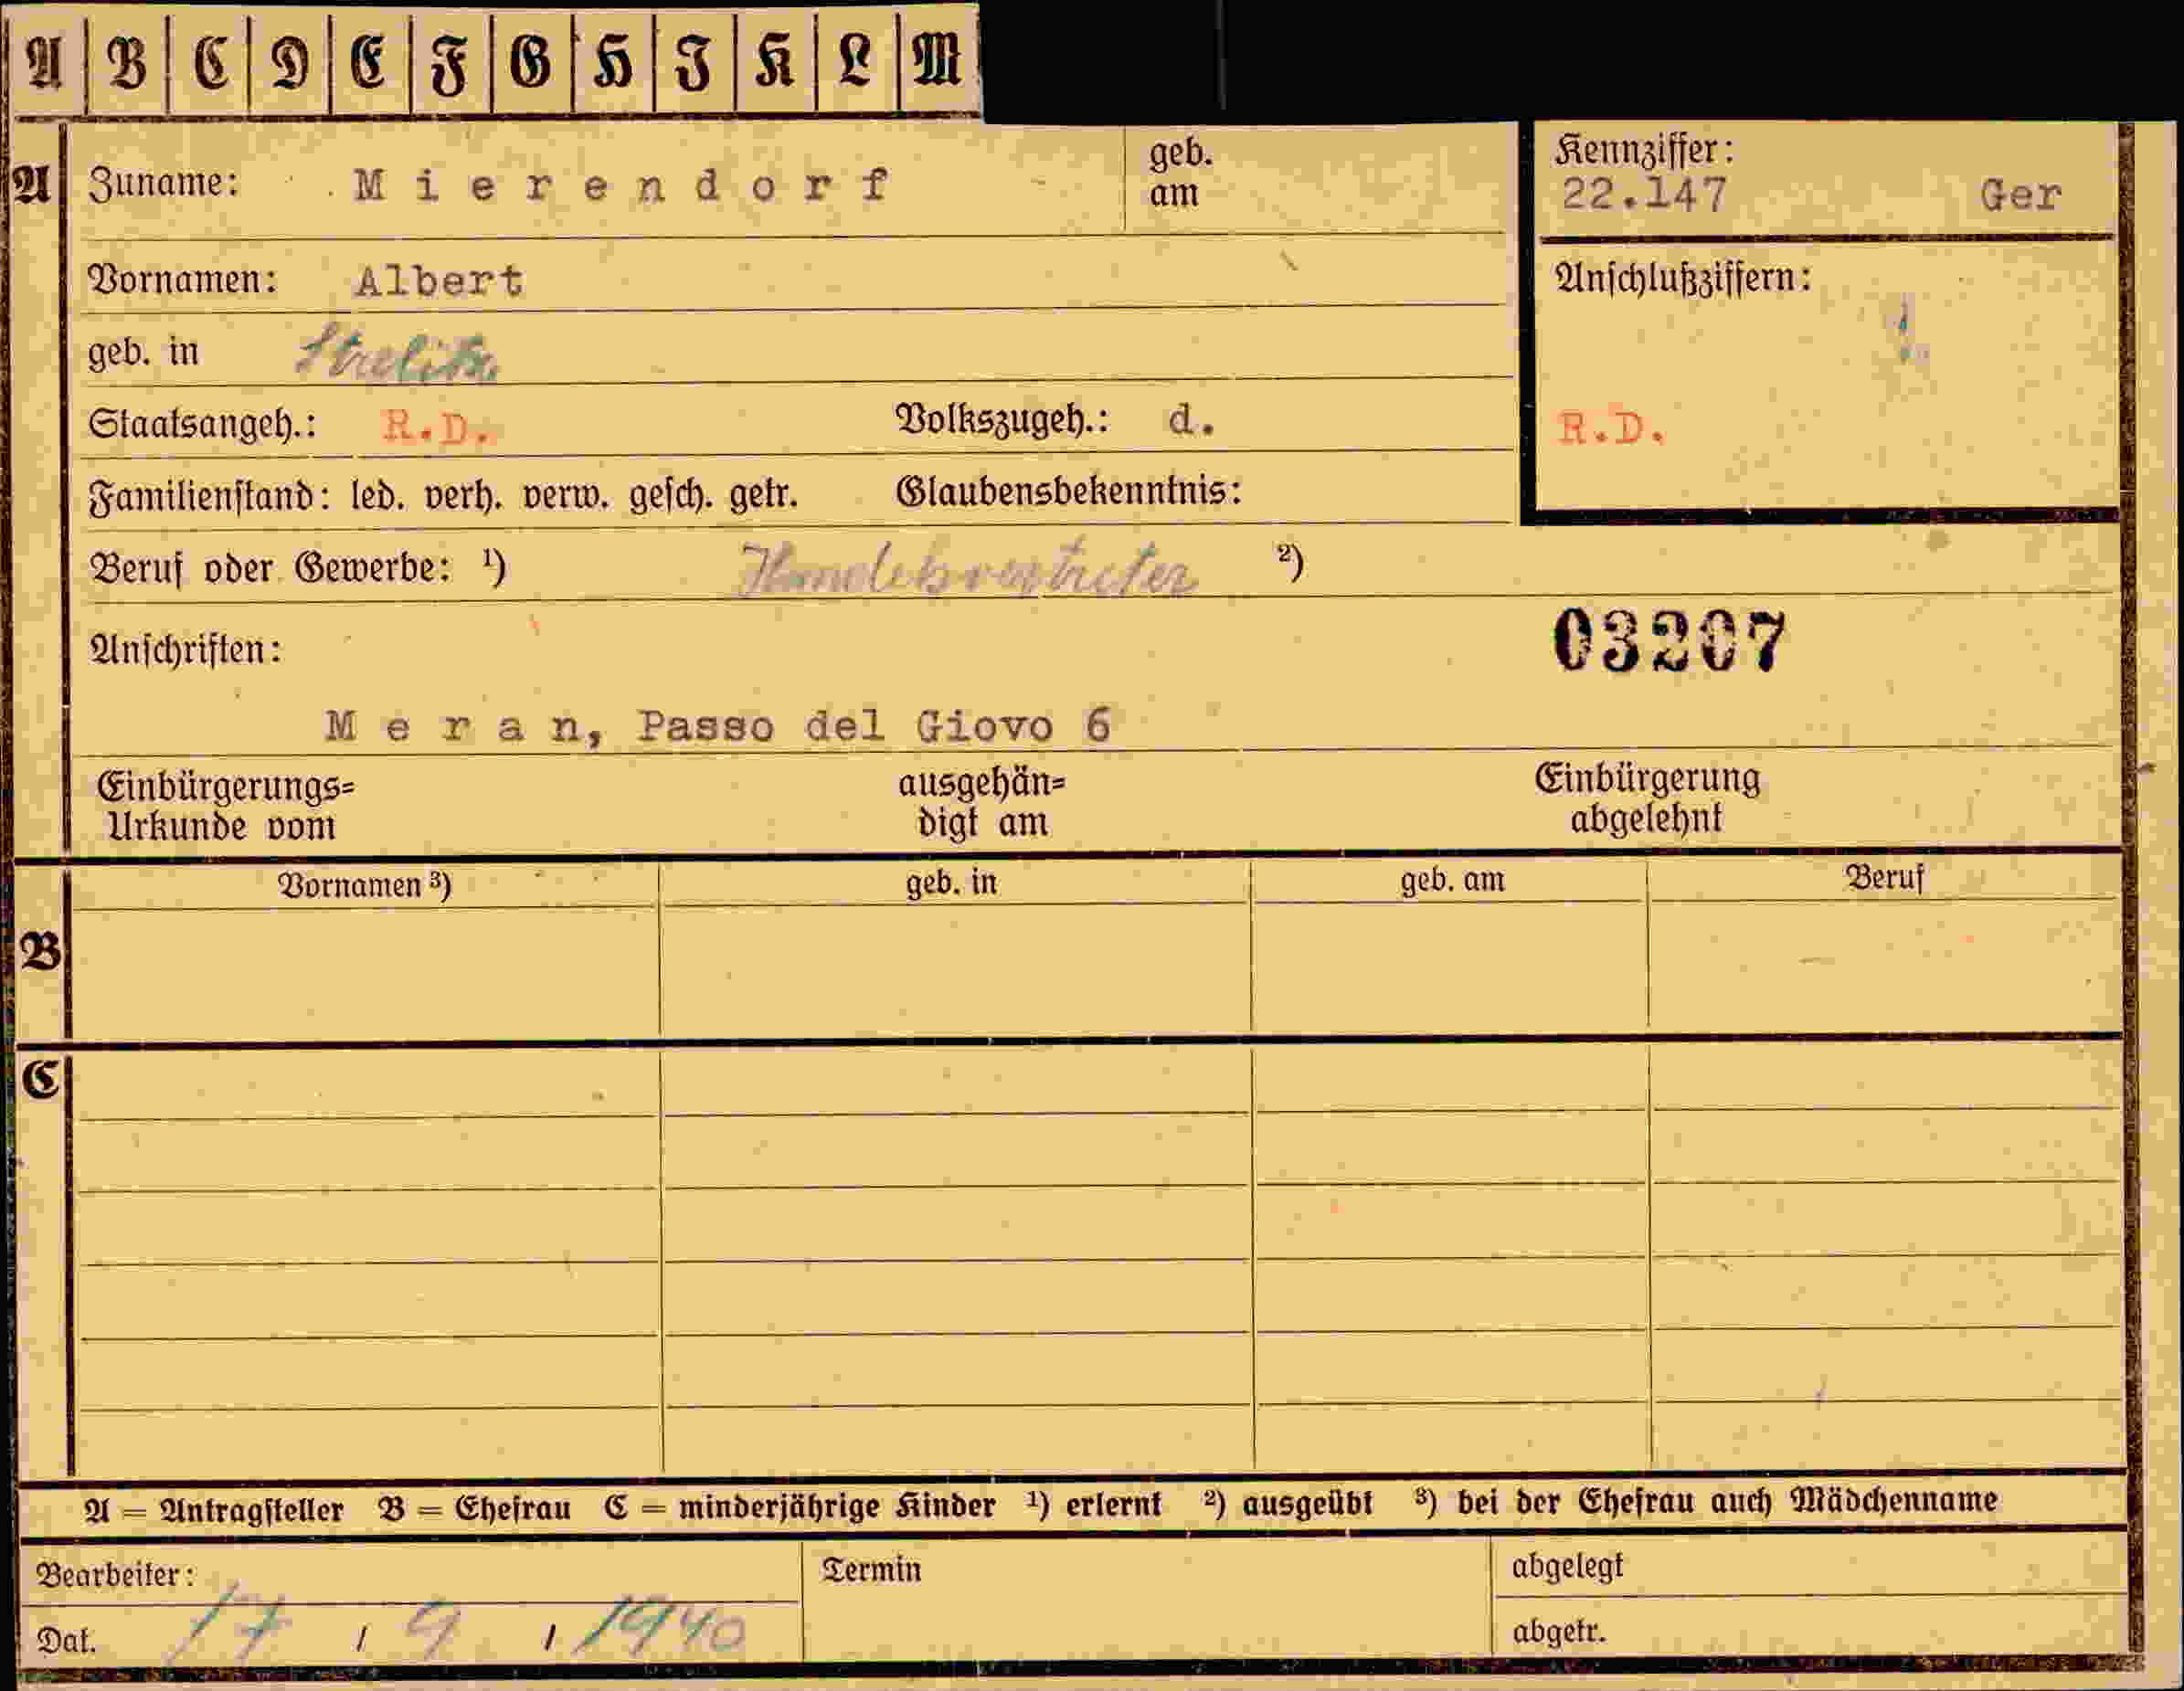 A B C D E F G H J K L M
A Zuname: M i e r e n d o r f geb. am
Kennziffer:
22.147 Ger
Vornamen: Albert
Anschlußziffern:
geb. in Strelitz
Staatsangeh.: R.D. Volkszugeh.: d.
R.D.
Familienstand: led. verh. verw. gesch. getr. Glaubensbekenntnis:
Beruf oder Gewerbe: ¹) Handelsvertreter ²)
Anschriften:
03207
M e r a n, Passo del Giovo 6
Einbürgerungs= ausgehän= Einbürgerung
Urkunde vom digt am abgelehnt
Vornamen ³) geb. in geb. am Beruf
B
C
A = Antragsteller B = Ehefrau C = minderjährige Kinder ¹) erlernt ²) ausgeübt ³) bei der Ehefrau auch Mädchenname
Bearbeiter: Termin abgelegt
Dat. 17 / 9 / 1940 abgetr.